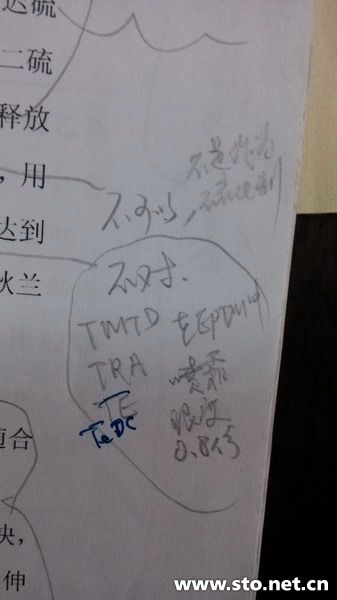 达硫
二硫
释放
，用
达到
狄兰
不可以，
不是作为
不对.
TMTD 在EPDM中
TRA 喷霜
TE 限度
TeDC 0.8份
适合
央，
伸
www.sto.net.cn